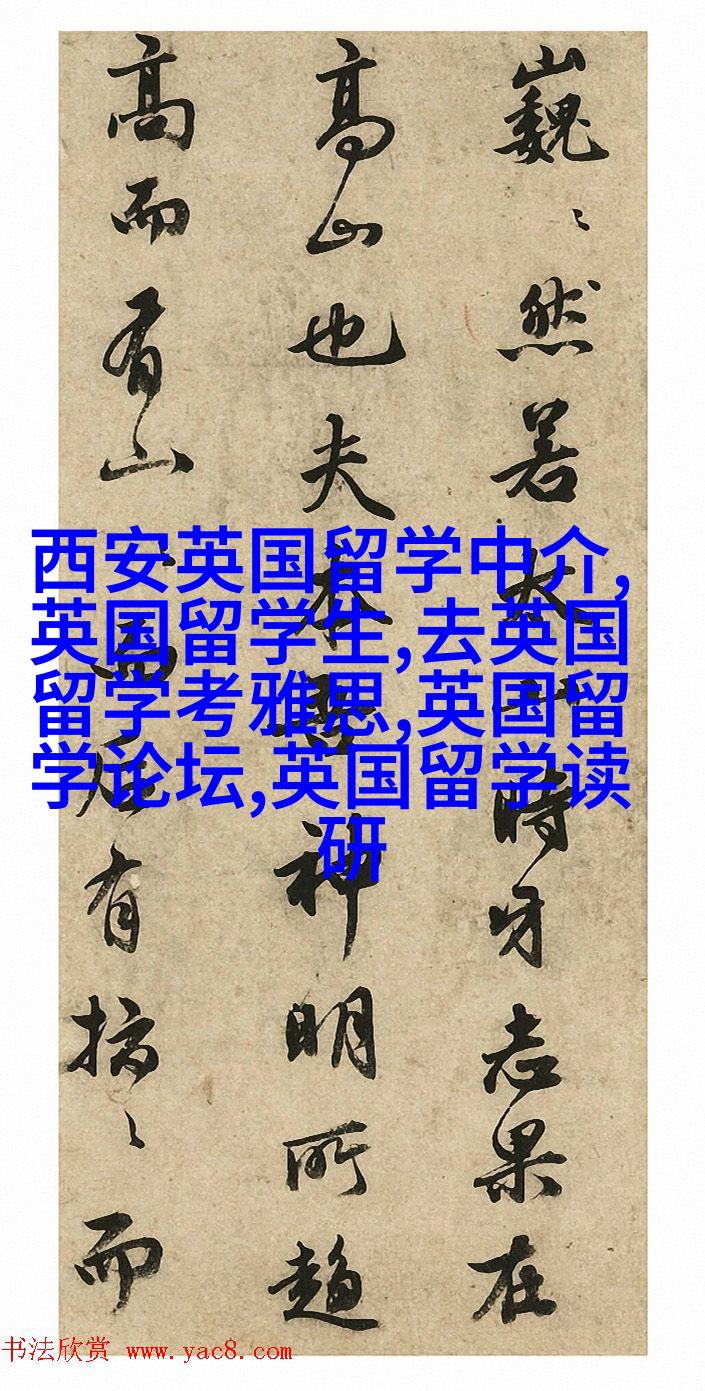 巍〻然若太山時牙志果在
高山也夫本神明所趨
高而有山而后有搞〻而
西安英国留学中介,
英国留学生,去英国
留学考雅思,英国留
学论坛,英国留学读
研
书法欣赏 www.yac8.com